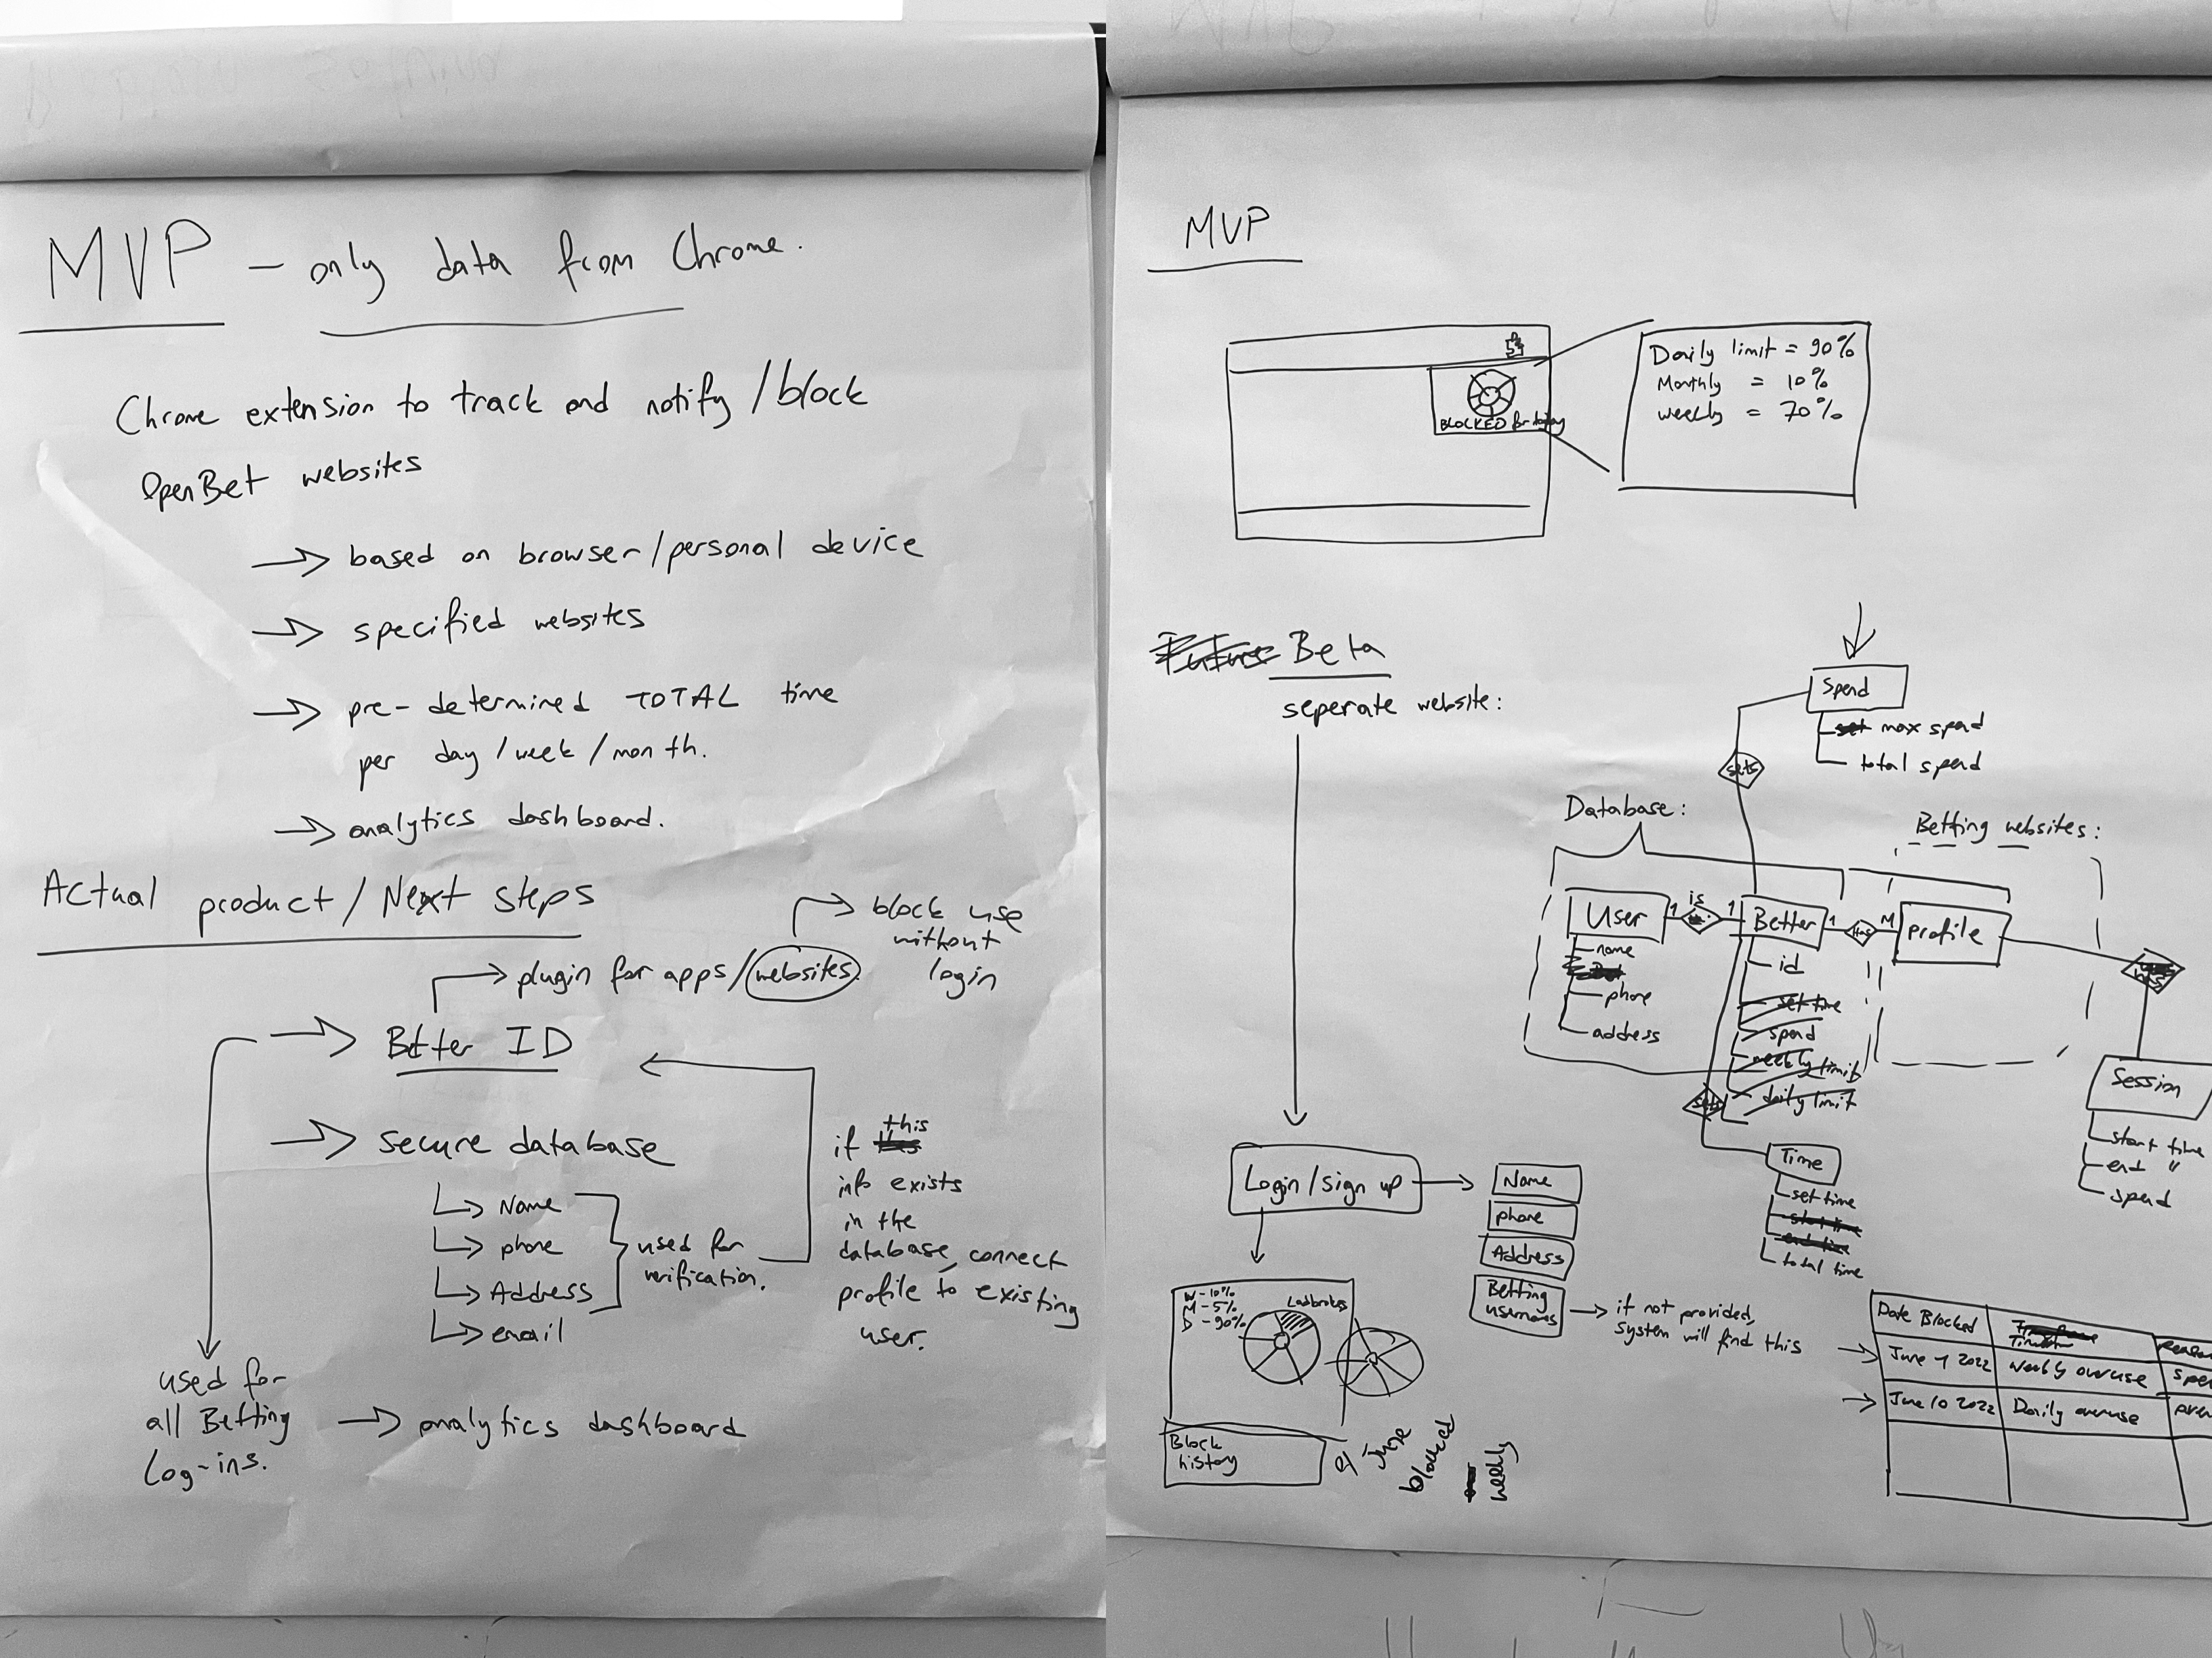 MVP - only data from Chrome.
Chrome extension to track and notify/block
OpenBet websites
→ based on browser/personal device
→ specified websites
→ pre-determined TOTAL time
per day/week/month.
→ analytics dashboard.
Actual product/Next steps
→ block use
without
login
→ plugin for apps/websites
→ Better ID
→ secure database
→ Name
→ phone
→ Address
→ email
used for
verification.
if this
info exists
in the
database, connect
profile to existing
user.
used for
all Betting
Log-ins.
→ analytics dashboard
MVP
BLOCKED for today
Daily limit = 90%
Monthly = 10%
weekly = 70%
Beta
seperate website:
Spend
max spend
total spend
sets
Database:
Betting websites:
User
1
is
1
Better
1
has
M
profile
name
phone
address
id
set time
spend
weekly limit
daily limit
sets
Time
set time
start time
end time
total time
has
Session
start time
end "
spend
Login/sign up
Name
phone
Address
Betting
→ if not provided,
system will find this
W - 10%
M - 5%
D - 90%
Ladbrokes
Block
history
June
blocked
weekly
Date Blocked
June 1 2022
weekly overuse
June 10 2022
Daily overuse